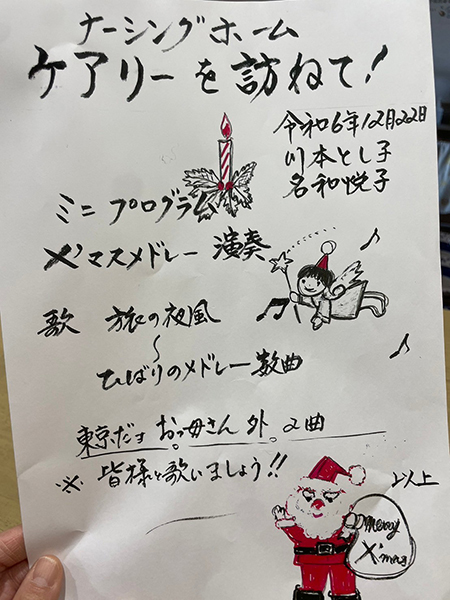 ナーシングホーム
ケアリーを訪ねて!
令和6年12月22日
川本とし子
名和悦子
ミニプログラム
X'マスメドレー 演奏
歌 旅の夜風
〜
ひばりのメドレー数曲
東京だョ おっ母さん 外。2曲
※ 皆様と歌いましょう!!
以上
Merry
X'mas